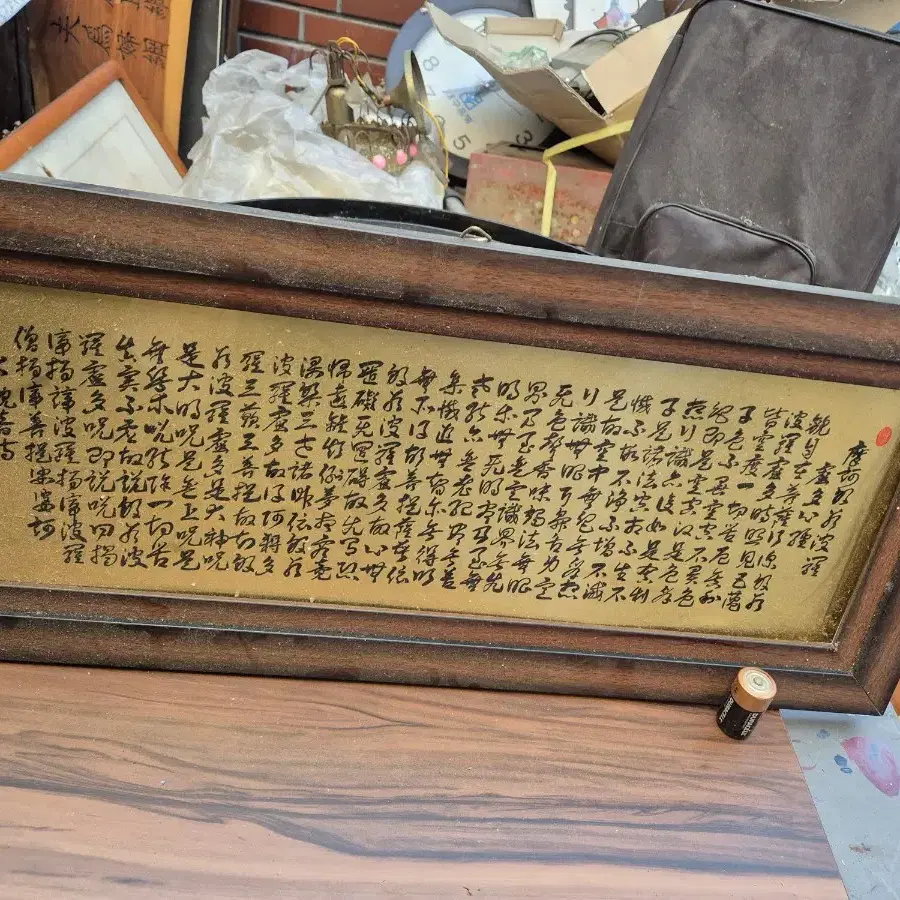 摩訶般若波羅
蜜多心經
觀自在菩薩行深般若
波羅蜜多時照見五蘊
皆空度一切苦厄舍利
子色不異空空不異色
色即是空空即是色受
想行識亦復如是舍利
子是諸法空相不生不
滅不垢不淨不增不減
是故空中無色無受想
行識無眼耳鼻舌身意
無色聲香味觸法無眼
界乃至無意識界無無
明亦無無明盡乃至無
老死亦無老死盡無苦
集滅道無智亦無得以
無所得故菩提薩埵依
般若波羅蜜多故心無
罣礙無罣礙故無有恐
怖遠離顛倒夢想究竟
涅槃三世諸佛依般若
波羅蜜多故得阿耨多
羅三藐三菩提故知般
若波羅蜜多是大神呪
是大明呪是無上呪是
無等等呪能除一切苦
真實不虛故說般若波
羅蜜多呪即說呪曰揭
諦揭諦波羅揭諦波羅
僧揭諦菩提娑婆訶
DURACELL
8
5
3